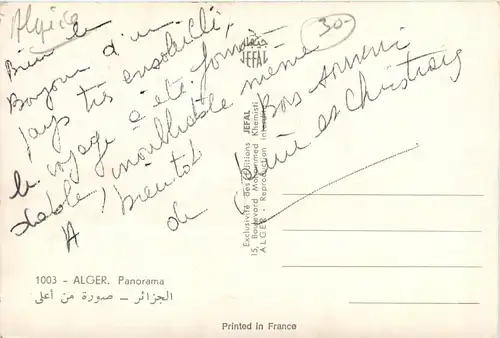 Algérie
30-
Bien le
Bonjour d'un
pays très ensoleillé,
le voyage a été formi-
dable inoubliable même
A bientôt Bons souvenir
de et Christian
JEFAL
Exclusivité des Editions JEFAL
15, Boulevard Mohammed Khemisti
ALGER - Reproduction Interdite
1003 - ALGER. Panorama
الجزائر — صورة من أعلى
Printed in France